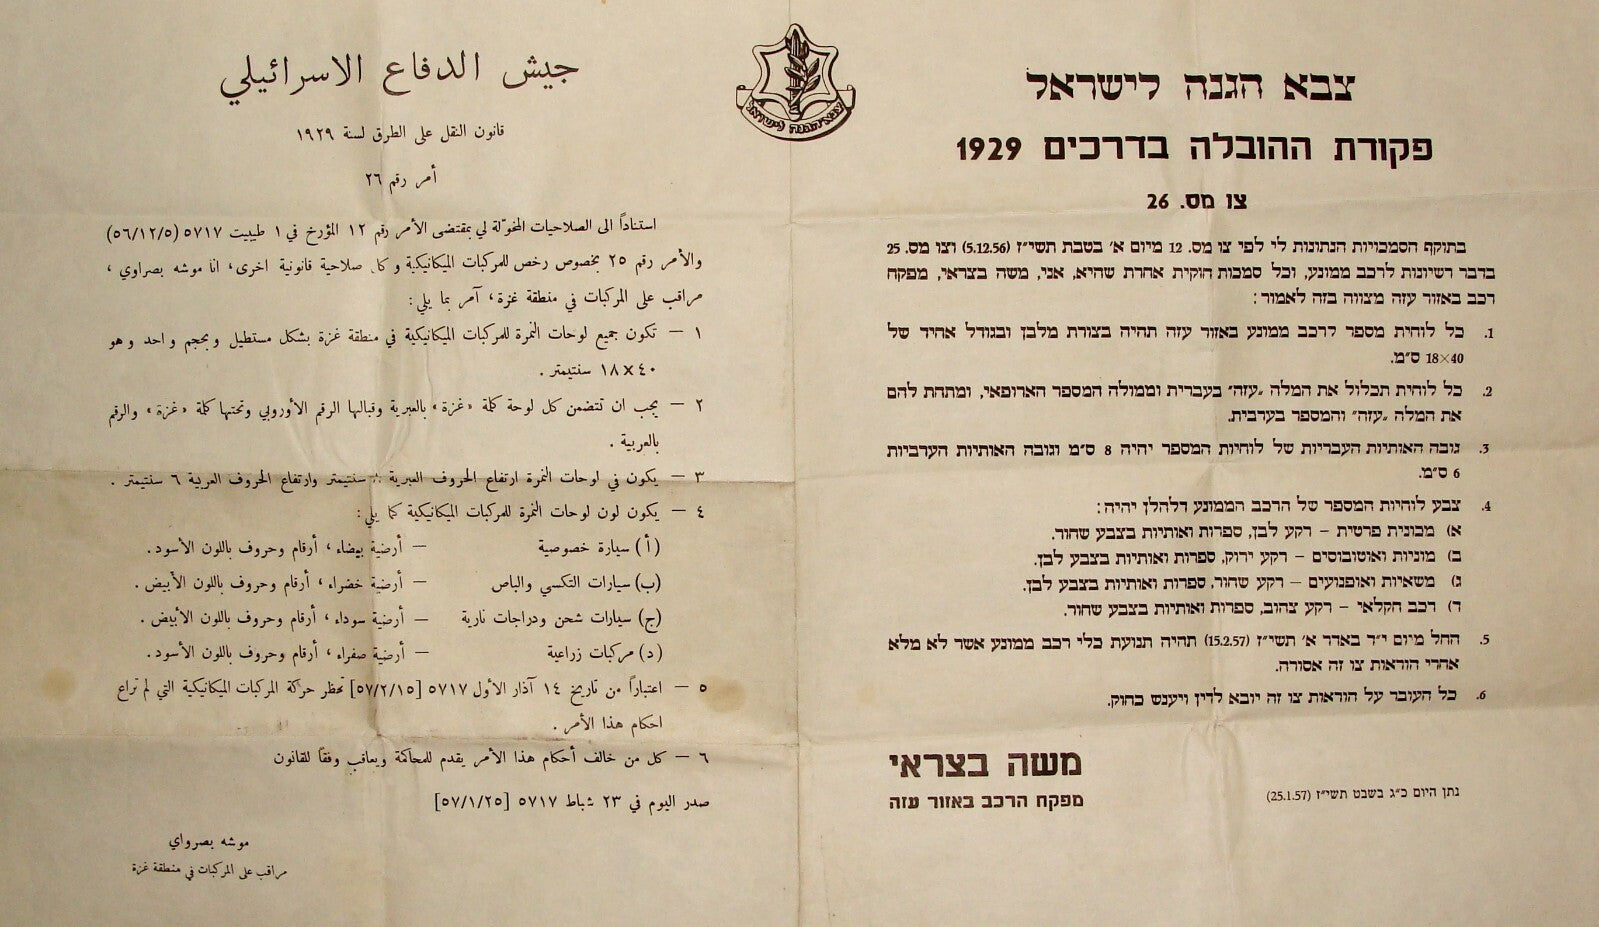 צבא הגנה לישראל
צבא הגנה לישראל
פקודת ההובלה בדרכים 1929
צו מס. 26
בתוקף הסמכויות הנתונות לי לפי צו מס. 12 מיום א׳ בטבת תשי״ז (5.12.56) וצו מס. 25
בדבר רשיונות לרכב ממונע, וכל סמכות חוקית אחרת שהיא, אני, משה בצראי, מפקח
רכב באזור עזה מצווה בזה לאמור:
1. כל לוחית מספר לרכב ממונע באזור עזה תהיה בצורת מלבן ובגודל אחיד של
18×40 ס״מ.
2. כל לוחית תכלול את המלה „עזה״ בעברית וממולה המספר הארופאי, ומתחת להם
את המלה „עזה״ והמספר בערבית.
3. גובה האותיות העבריות של לוחיות המספר יהיה 8 ס״מ וגובה האותיות הערביות
6 ס״מ.
4. צבע לוחיות המספר של הרכב הממונע דלהלן יהיה:
א) מכונית פרטית – רקע לבן, ספרות ואותיות בצבע שחור.
ב) מוניות ואוטובוסים – רקע ירוק, ספרות ואותיות בצבע לבן.
ג) משאיות ואופנועים – רקע שחור, ספרות ואותיות בצבע לבן.
ד) רכב חקלאי – רקע צהוב, ספרות ואותיות בצבע שחור.
5. החל מיום י״ד באדר א׳ תשי״ז (15.2.57) תהיה תנועת כלי רכב ממונע אשר לא מלא
אחרי הוראות צו זה אסורה.
6. כל העובר על הוראות צו זה יובא לדין ויענש כחוק.
נתן היום כ״ג בשבט תשי״ז (25.1.57)
משה בצראי
מפקח הרכב באזור עזה
جيش الدفاع الاسرائيلي
قانون النقل على الطرق لسنة ١٩٢٩
أمر رقم ٢٦
استناداً الى الصلاحيات المخوّلة لي بمقتضى الأمر رقم ١٢ المؤرخ في ١ طيبيت ٥٧١٧ (٥٦/١٢/٥)
والأمر رقم ٢٥ بخصوص رخص للمركبات الميكانيكية وكل صلاحية قانونية اخرى، انا موشه بصراوي،
مراقب على المركبات في منطقة غزة، آمر بما يلي:
١ – تكون جميع لوحات النمرة للمركبات الميكانيكية في منطقة غزة بشكل مستطيل وبحجم واحد وهو
٤٠×١٨ سنتيمتر.
٢ – يجب ان تتضمن كل لوحة كلمة «غزة» بالعبرية وقبالها الرقم الأوروبي وتحتها كلمة «غزة» والرقم
بالعربية.
٣ – يكون في لوحات النمرة ارتفاع الحروف العبرية سنتيمتر وارتفاع الحروف العربية ٦ سنتيمتر.
٤ – يكون لون لوحات النمرة للمركبات الميكانيكية كما يلي:
(أ) سيارة خصوصية – أرضية بيضاء، أرقام وحروف باللون الأسود.
(ب) سيارات التكسي والباص – أرضية خضراء، أرقام وحروف باللون الأبيض.
(ج) سيارات شحن ودراجات نارية – أرضية سوداء، أرقام وحروف باللون الأبيض.
(د) مركبات زراعية – أرضية صفراء، أرقام وحروف باللون الأسود.
٥ – اعتباراً من تاريخ ١٤ آذار الأول ٥٧١٧ [٥٧/٢/١٥] تحظر حركة المركبات الميكانيكية التي لم تراع
احكام هذا الأمر.
٦ – كل من خالف أحكام هذا الأمر يقدم للمحاكمة ويعاقب وفقاً للقانون
صدر اليوم في ٢٣ شباط ٥٧١٧ [٥٧/١/٢٥]
موشه بصرواي
مراقب على المركبات في منطقة غزة